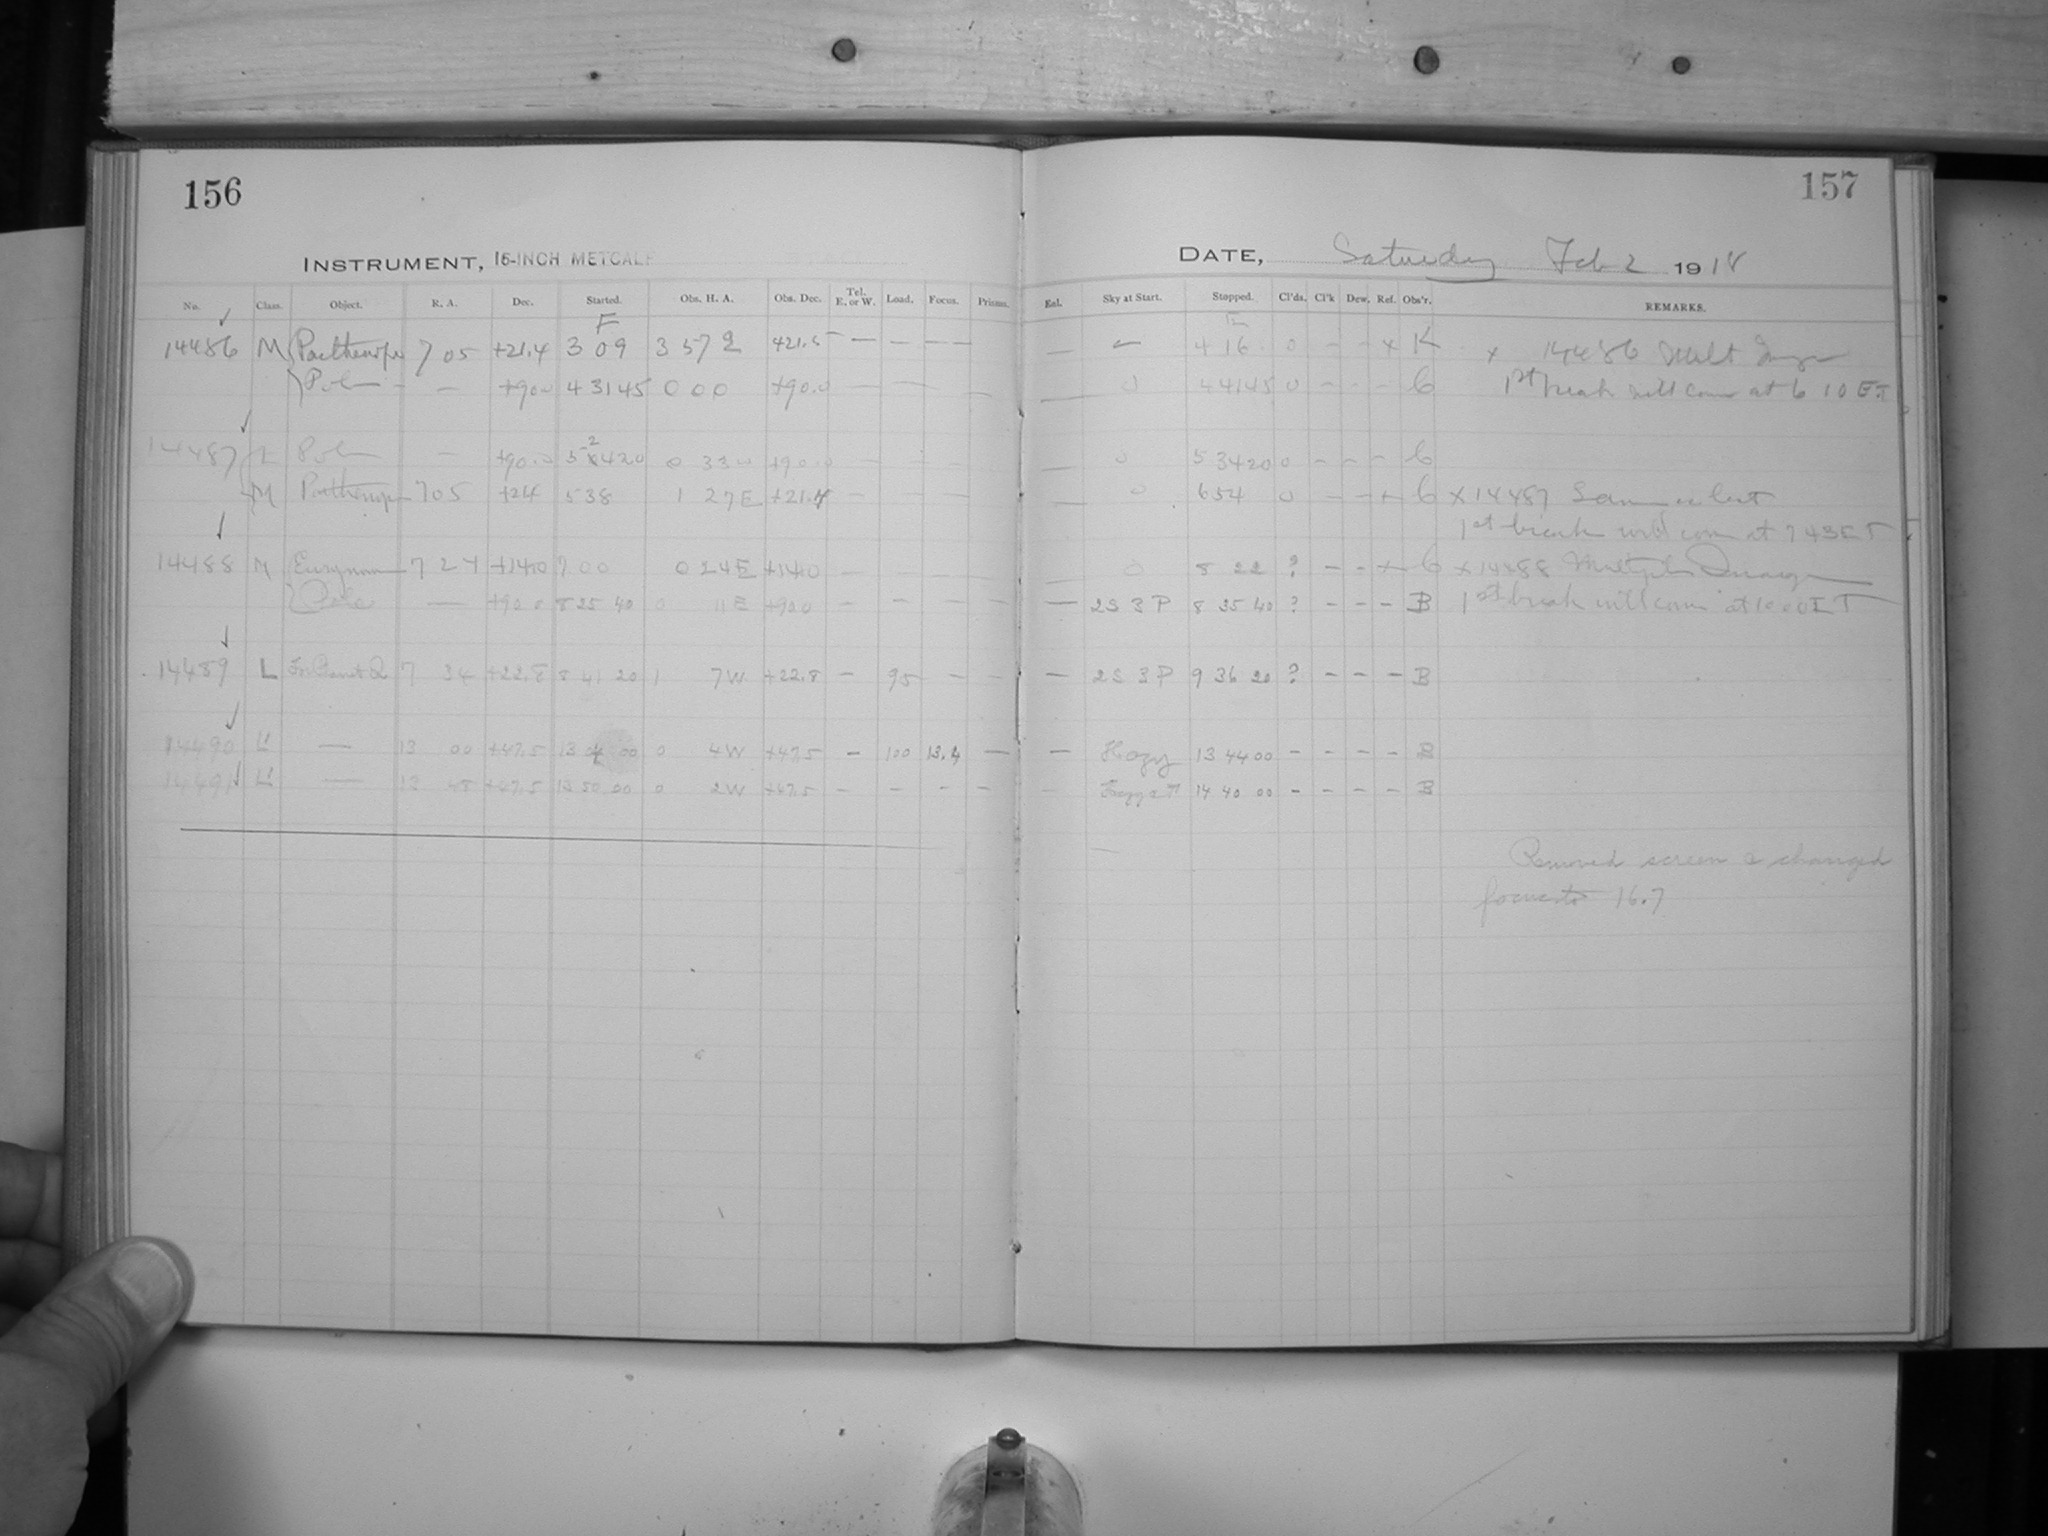 156
157
INSTRUMENT, 16-INCH METCALF
DATE, Saturday Feb 2 1918
No. Class. Object. R. A. Dec. Started. Obs. H. A. Obs. Dec. Tel. E. or W. Load. Focus. Prisms. Exl. Sky at Start. Stopped. Cl'ds. Cl'k Dew. Ref. Obs'r. REMARKS.
14486 M Parthenope 7 05 +21.4 3 09 3 57 +21.5 — — — — — 4 16 0 - - x K x 14486 Mult Image
Pole - — +90.0 4 31 45 0 0 0 +90.0 — — — — 0 4 41 45 0 - - - C 1st break will come at 6 10 E.T
14487 L Pole — +90.0 0 33 0 +90.0 — — — 0 5 34 20 0 - - - C
M Parthenope 7 05 +21.4 5 38 1 27 E +21.4 — — — — 0 6 54 0 - - x C x 14487 Same as last
1st break will come at 7 43 E T
14488 M Eurynome 7 24 +14.0 7 00 0 24 E +14.0 — — — 0 8 22 ? - - x C x 14488 Multiple Image
Pole — +90.0 8 25 40 0 11 E +90.0 - - - - — 2S 3P 8 35 40 ? - - - B 1st break will come at 10 00 E T
14489 L 7 34 +22.8 8 41 20 1 7W +22.8 - 95 - - — 2S 3P 9 36 20 ? - - - B
14490 L' — 13 00 +47.5 13 04 00 0 4W +47.5 - 100 13.4 — — Hazy 13 44 00 - - - - B
14491 L' — 13 48 +47.5 13 50 00 0 2W +47.5 - - - - - 14 40 00 - - - - B
Removed screen & changed
focus to 16.7